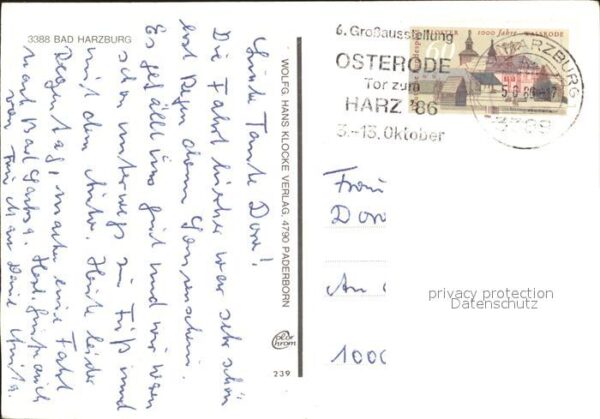 3388 BAD HARZBURG
Liebe Tante Dora!
Die Fahrt hierher war sehr schön
erst Regen dann Sonnenschein.
Es gefällt uns gut und wir waren
schon unterwegs zu Fuß und
mit dem Auto. Heute leider
Regentag, machen eine Fahrt
nach Bad
von
WOLFG. HANS KLOCKE VERLAG, 4790 PADERBORN
color
chrom
239
6. Großausstellung
OSTERODE
Tor zum
HARZ '86
3.-13. Oktober
60
1000 Jahre WALSRODE
HARZBURG
3388
Frau
Dor
An
1000
privacy protection
Datenschutz